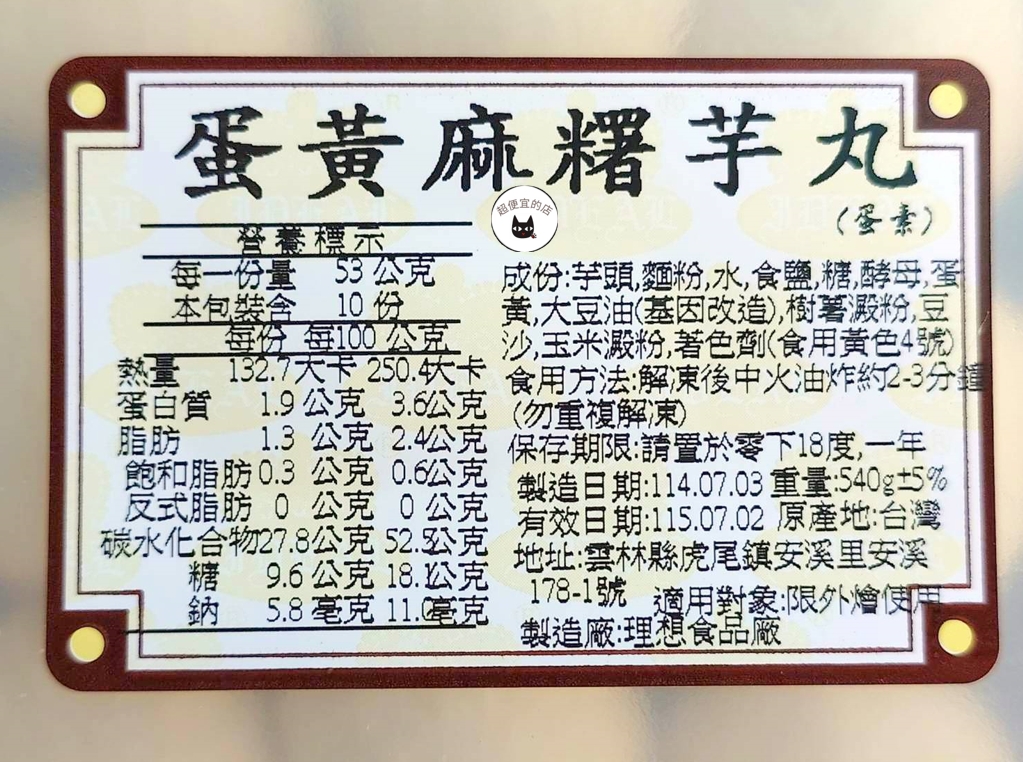 蛋黃麻糬芋丸
(蛋素)
超便宜的店
營養標示
每一份量 53 公克
本包裝含 10 份
每份 每100 公克
熱量 132.7大卡 250.4大卡
蛋白質 1.9 公克 3.6公克
脂肪 1.3 公克 2.4公克
飽和脂肪 0.3 公克 0.6公克
反式脂肪 0 公克 0 公克
碳水化合物27.8公克 52.5公克
糖 9.6 公克 18.1公克
鈉 5.8 毫克 11.0毫克
成份:芋頭,麵粉,水,食鹽,糖,酵母,蛋
黃,大豆油(基因改造),樹薯澱粉,豆
沙,玉米澱粉,著色劑(食用黃色4號)
食用方法:解凍後中火油炸約2-3分鐘
(勿重複解凍)
保存期限:請置於零下18度,一年
製造日期:114.07.03 重量:540g±5%
有效日期:115.07.02 原產地:台灣
地址:雲林縣虎尾鎮安溪里安溪
178-1號 適用對象:限外燴使用
製造廠:理想食品廠